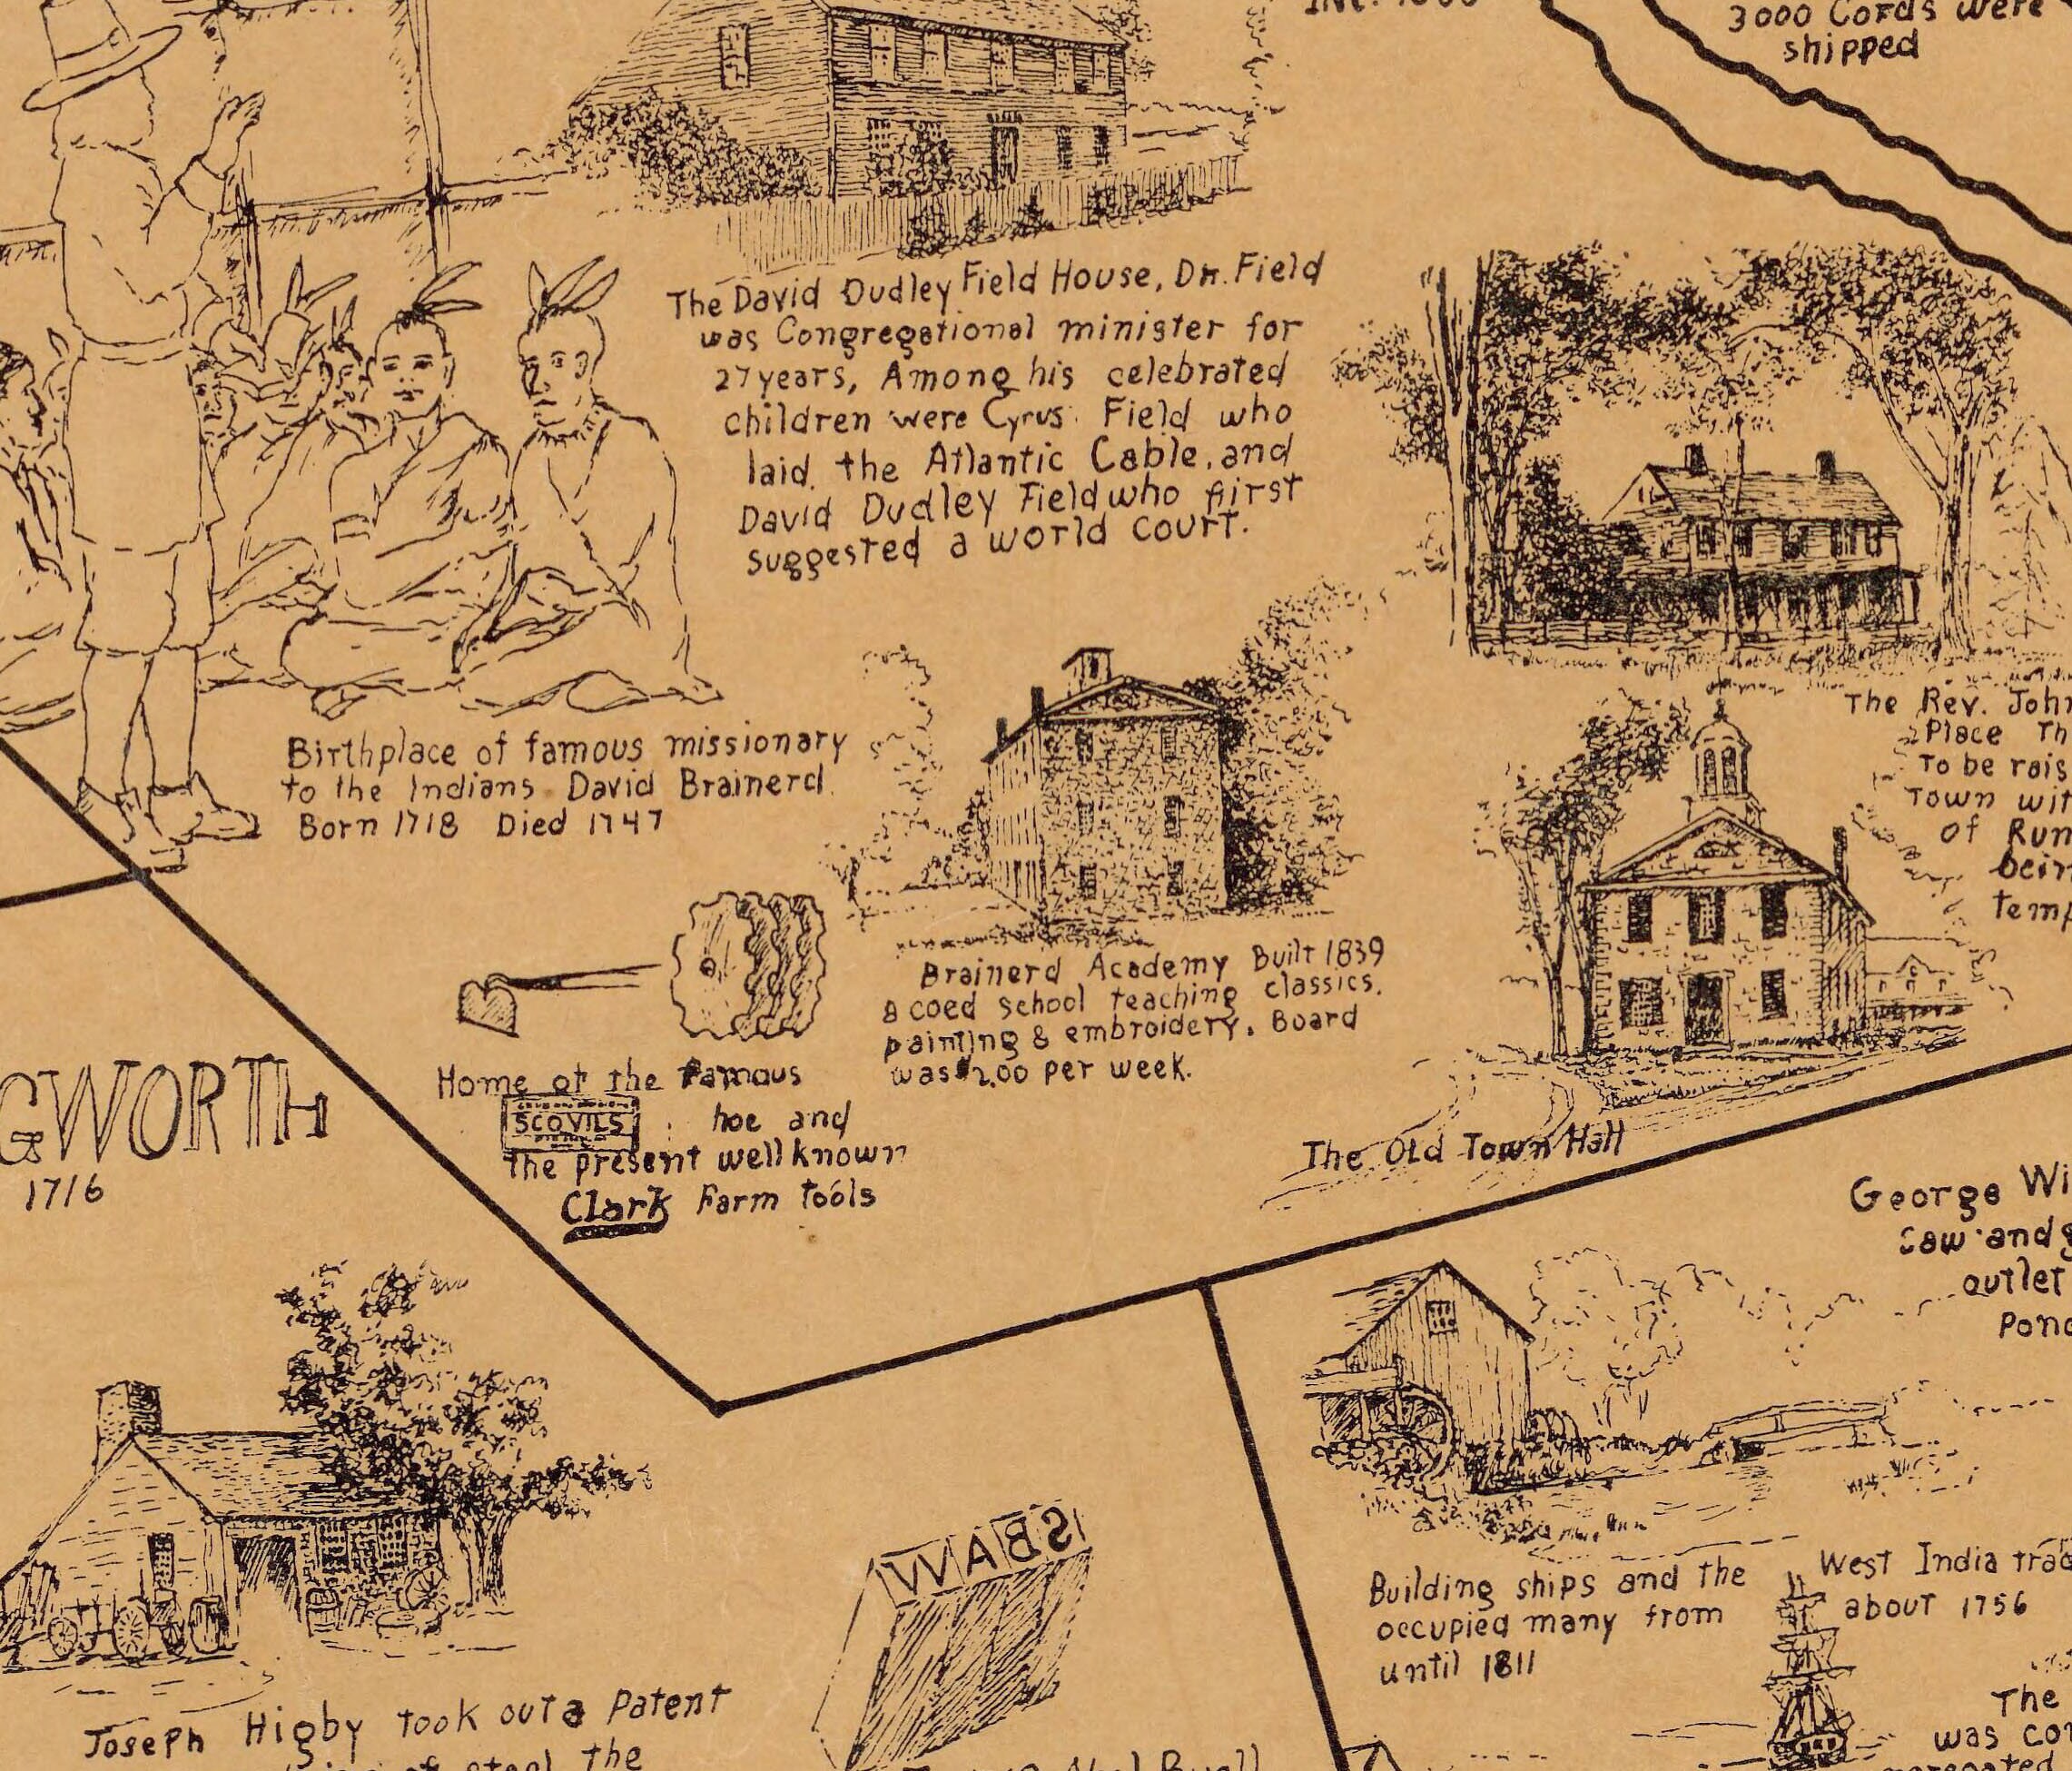 3000 Cords were
shipped
The David Dudley Field House, Dr. Field
was Congregational minister for
27 years, Among his celebrated
children were Cyrus Field who
laid the Atlantic Cable, and
David Dudley Field who first
suggested a world court.
Birthplace of famous missionary
to the Indians David Brainerd.
Born 1718 Died 1747
The Rev. John
Place Th
To be rais
Town wit
of Run
bein
temp
Brainerd Academy Built 1839
a coed school teaching classics,
painting & embroidery. Board
was $2.00 per week.
Home of the Famous
SCOVILS hoe and
the present well known
Clark Farm tools
The Old Town Hall
GWORTH
1716
George Wi
Saw and g
outlet
Pond
Building ships and the West India trad
occupied many from about 1756
until 1811
SBAW
Joseph Higby took out a Patent
of steel the
Abel Buell
The
was con